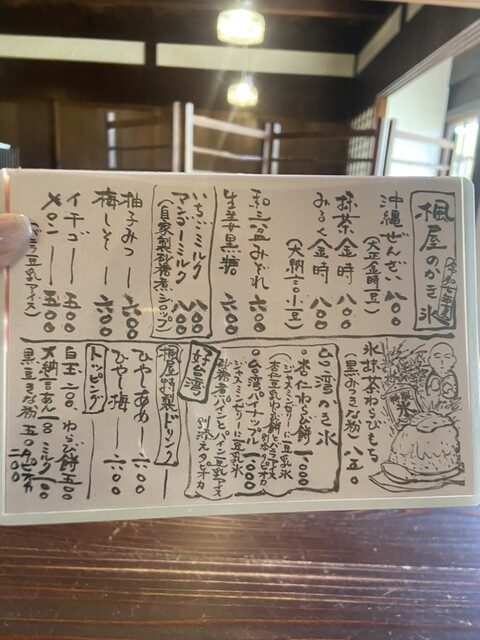 楓屋のかき氷
沖縄ぜんざい 八〇〇
(大正金時豆)
抹茶金時 八〇〇
みるく金時 八〇〇
(大納言小豆)
和三盆みぞれ 六〇〇
生姜黒糖 六〇〇
いちごミルク 八〇〇
アンズミルク 八〇〇
(自家製砂糖煮シロップ)
柚子みつ 六〇〇
梅しそ 六〇〇
イチゴ 五〇〇
メロン 五〇〇
(バニラ豆乳アイス)
氷
氷抹茶わらびもち
黒みつきな粉) 八五〇
台湾かき氷
・杏仁わらび餅 1000
・台湾パイナップル 1000
砂糖煮パインとパイン豆乳アイス
ジャスミンゼリーに豆乳氷
別添えタピオカ
好台湾
楓屋特製ドリンク
ひやしあめ 六〇〇
ひやし梅 六〇〇
トッピング
白玉 二〇〇 わらび餅 五〇〇
大納言あん 一五〇 ミルク 一〇〇
黒豆きな粉 五〇 タピオカ 二〇〇